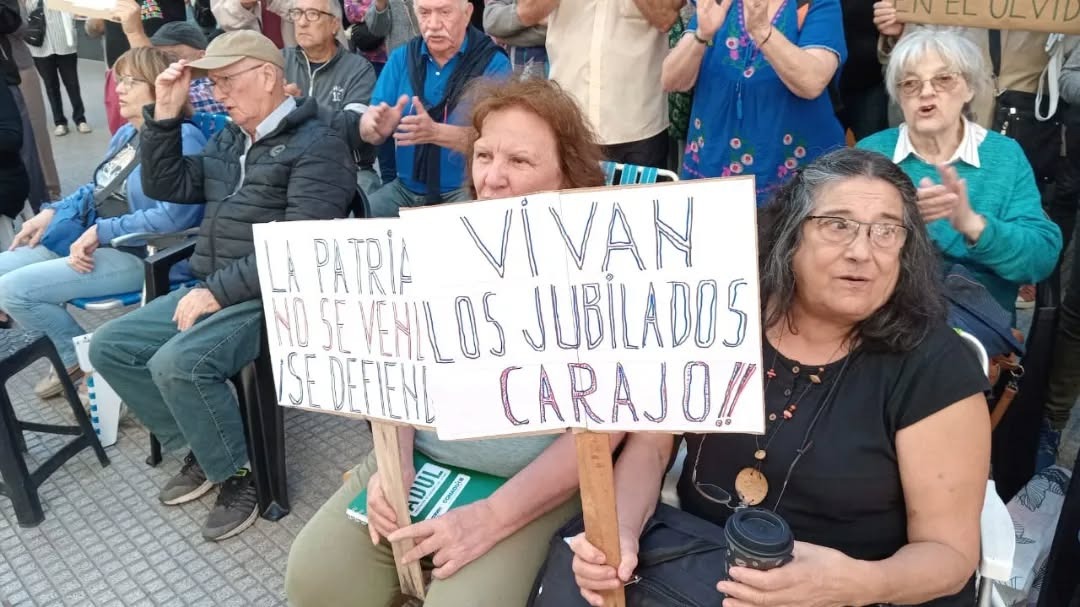 EN EL OLVID
LA PATRIA
NO SE VEN
¡SE DEFIEN
VIVAN
LOS JUBILADOS
CARAJO!!